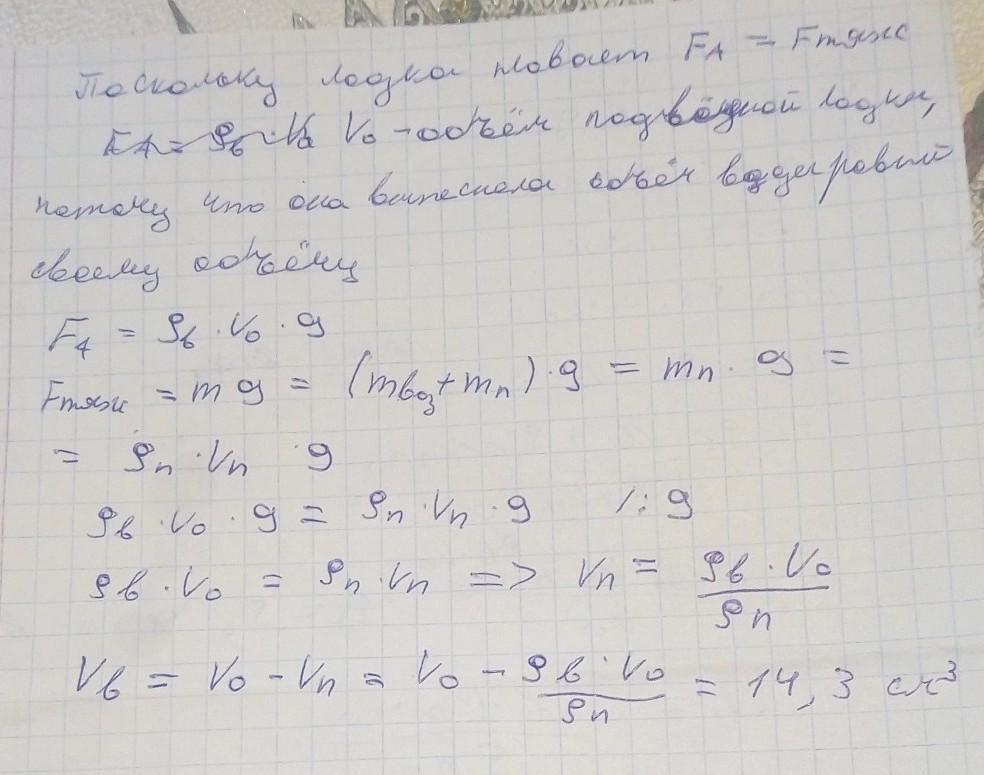 Поскольку лодка плавает F_A = Fтяж
F_A = ρ_в · V_0 V_0 - объём подводной лодки,
потому что она вытеснела объём воды равный
своему объёму
F_A = ρ_в · V_0 · g
Fтяж = m g = (m_воз + m_п) · g = m_п · g =
= ρ_п · V_п · g
ρ_в · V_0 · g = ρ_п · V_п · g /: g
ρ_в · V_0 = ρ_п · V_п => V_п = ρ_в · V_0 / ρ_п
V_в = V_0 - V_п = V_0 - ρ_в · V_0 / ρ_п = 14,3 см³